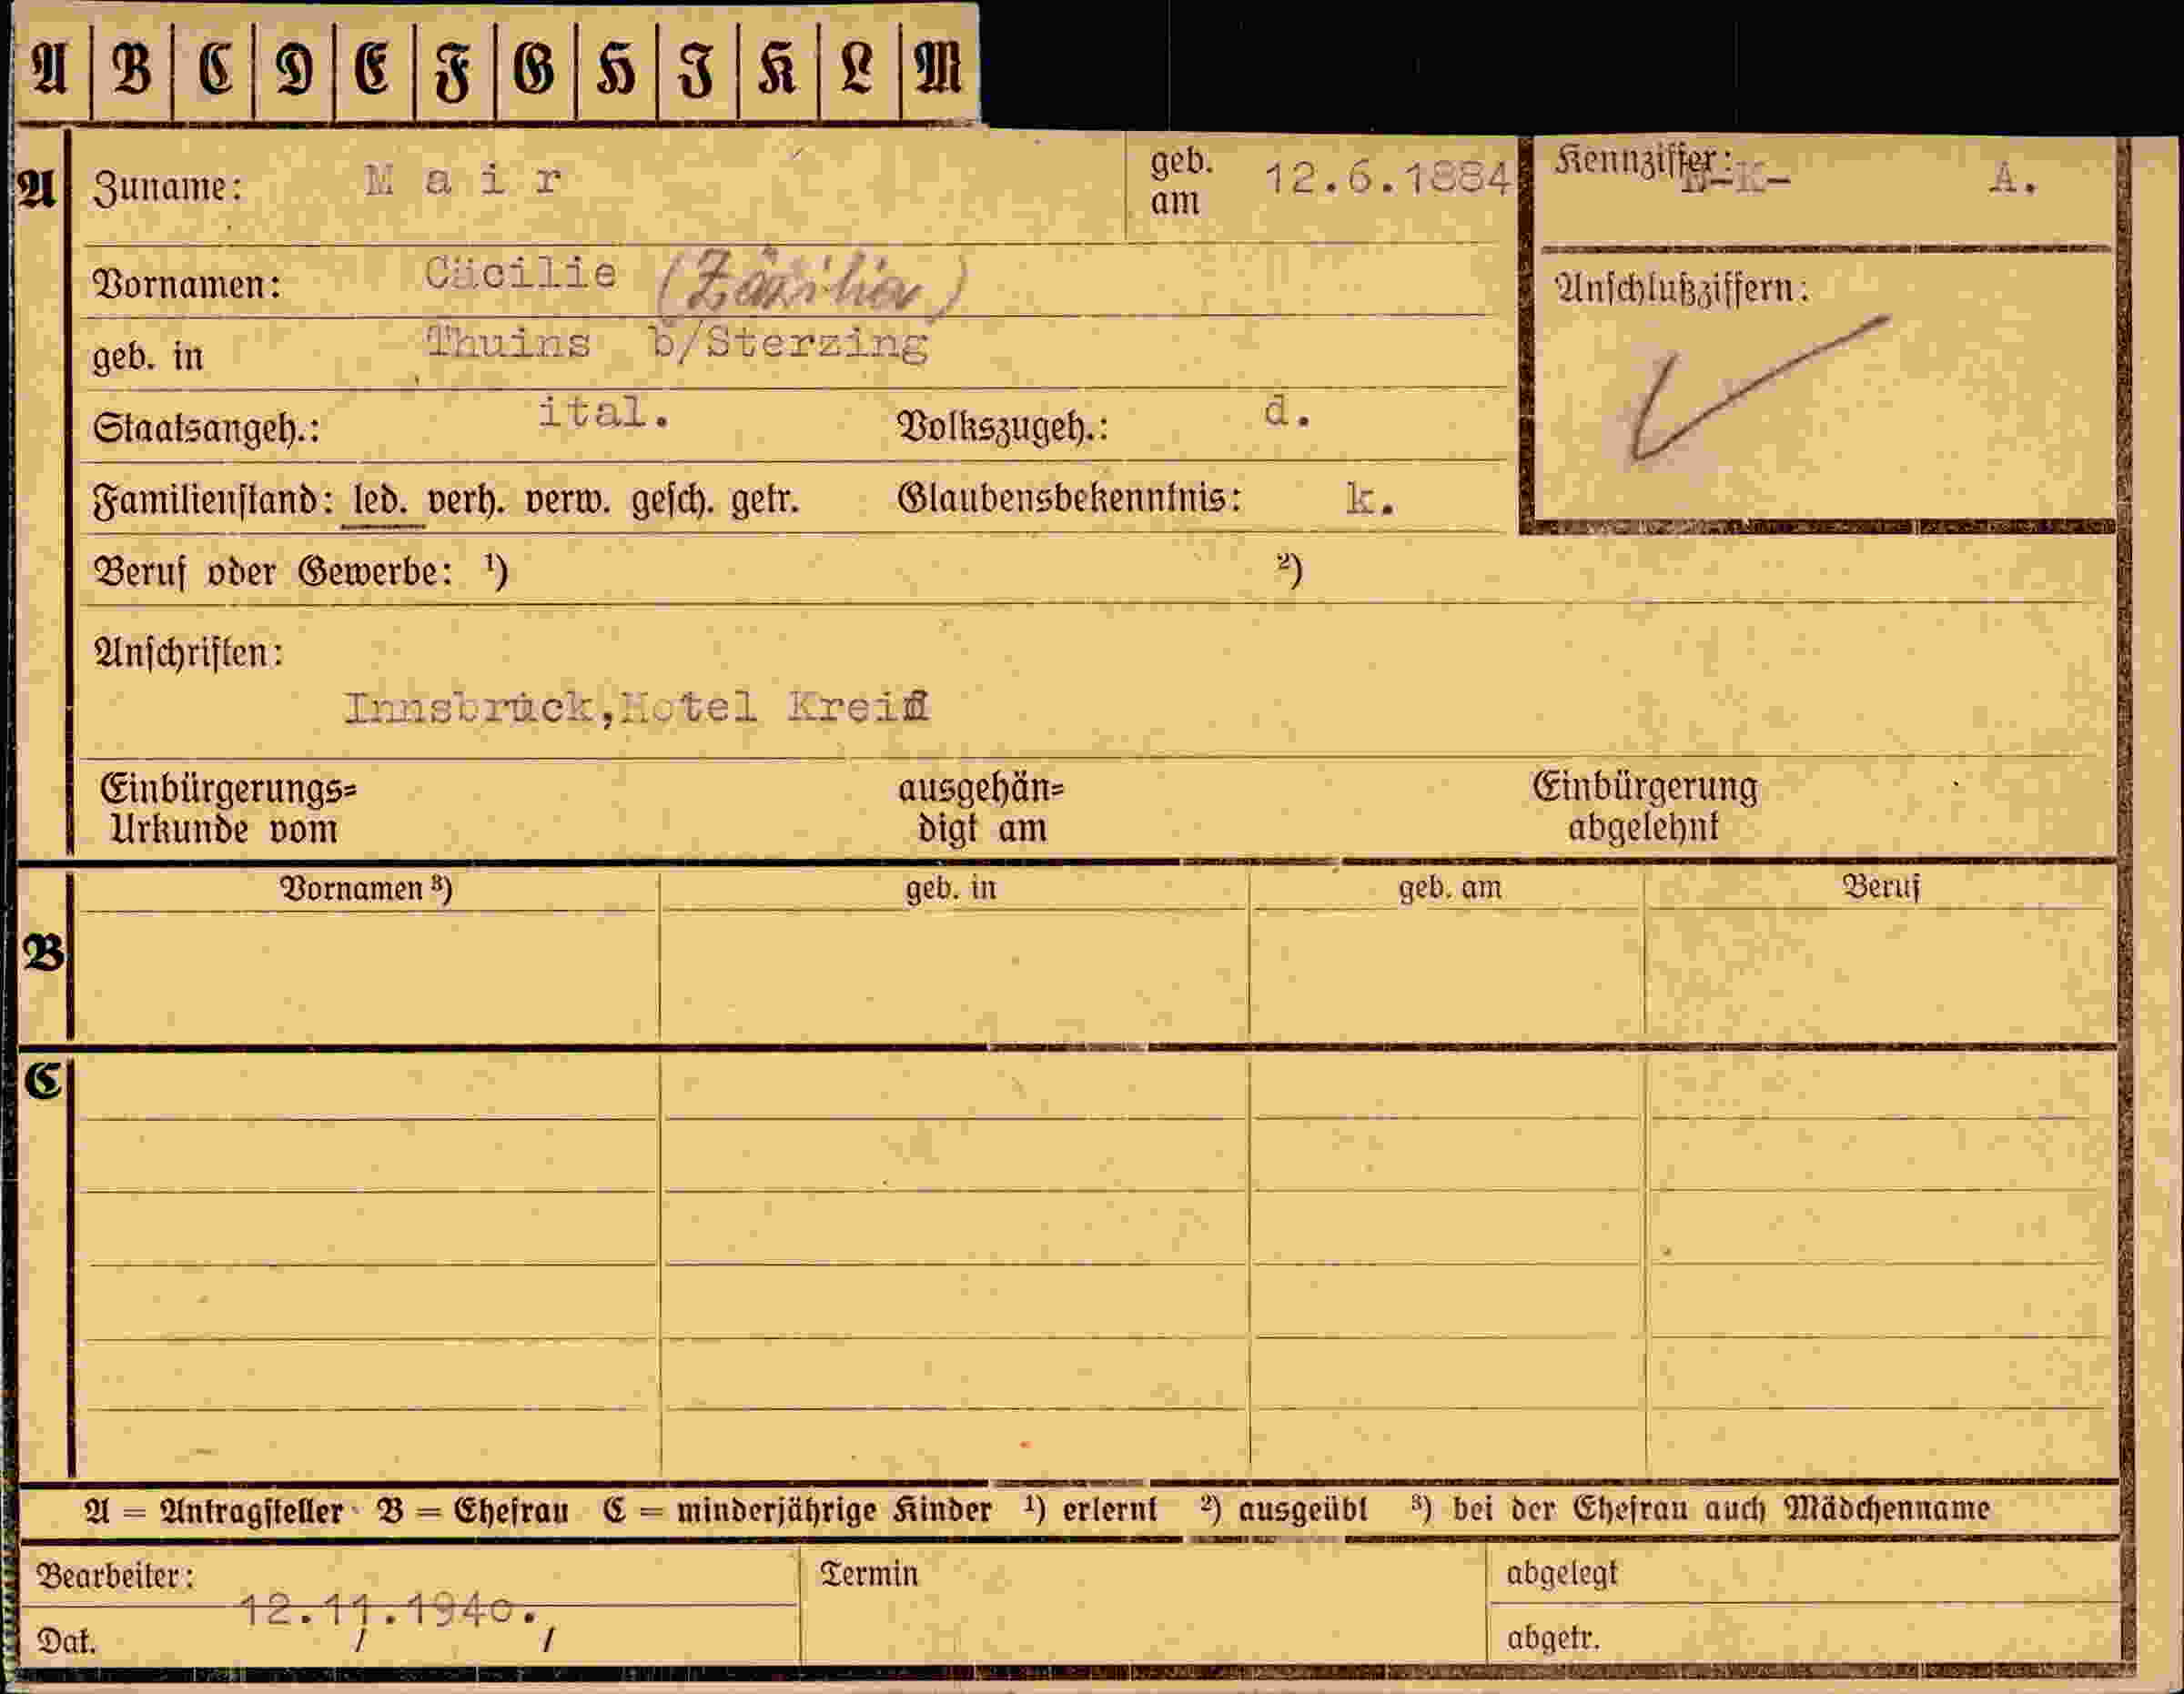 A B C D E F G H I K L M
A Zuname: Mair geb. am 12.6.1884 Kennziffer: -K- A.
Vornamen: Cäcilie (Zäzilia) Anschlußziffern:
geb. in Thuins b/Sterzing
Staatsangeh.: ital. Volkszugeh.: d.
Familienstand: led. verh. verw. gesch. getr. Glaubensbekenntnis: k.
Beruf oder Gewerbe: ¹) ²)
Anschriften:
Innsbruck, Hotel Kreid
Einbürgerungs= Urkunde vom ausgehän= digt am Einbürgerung abgelehnt
Vornamen ³) geb. in geb. am Beruf
B
C
A = Antragsteller B = Ehefrau C = minderjährige Kinder ¹) erlernt ²) ausgeübt ³) bei der Ehefrau auch Mädchenname
Bearbeiter: Termin abgelegt
12.11.1940.
Dat. abgetr.